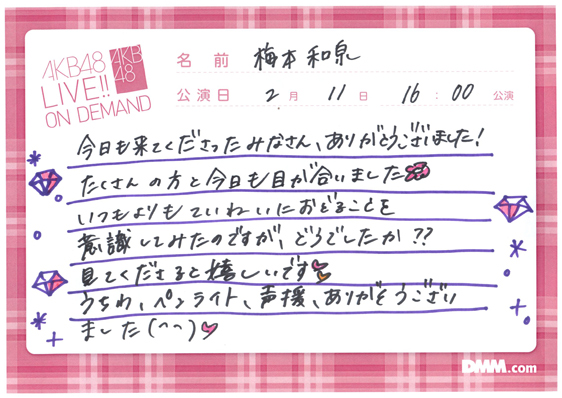 AKB48
LIVE!!
ON DEMAND
AKB
48
名前 梅本和泉
公演日 2月 11日 16:00 公演
今日も来てくださったみなさん、ありがとうございました!
たくさんの方と今日も目が合いました
いつもよりもていねいにおどることを
意識してみたのですが、どうでしたか??
見てくださると嬉しいです
うちわ、ペンライト、声援、ありがとうござい
ました(^^)
DMM.com